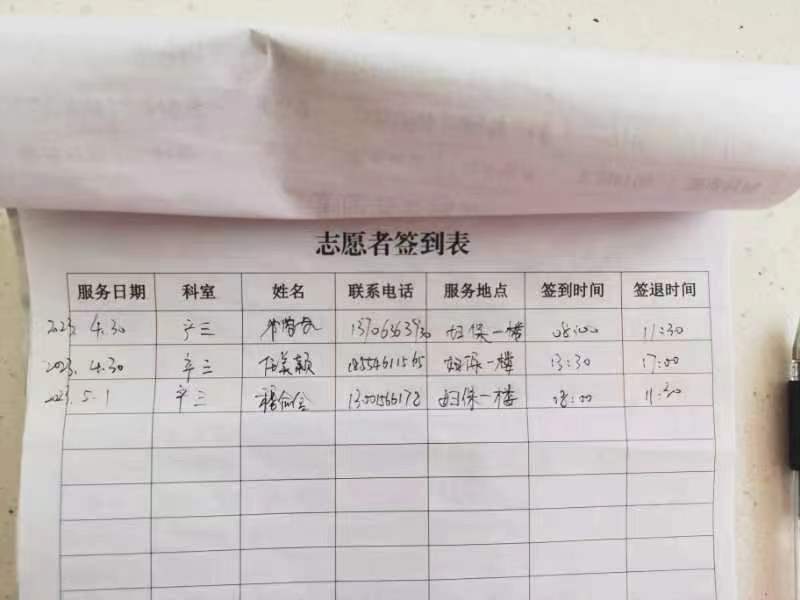 志愿者签到表
服务日期 科室 姓名 联系电话 服务地点 签到时间 签退时间
2023. 4.30 产三 妇保一楼 08:00 11:30
2023. 4.30 产三 妇保一楼 13:30 17:00
2023. 5.1 产三 妇保一楼 08:00 11:30